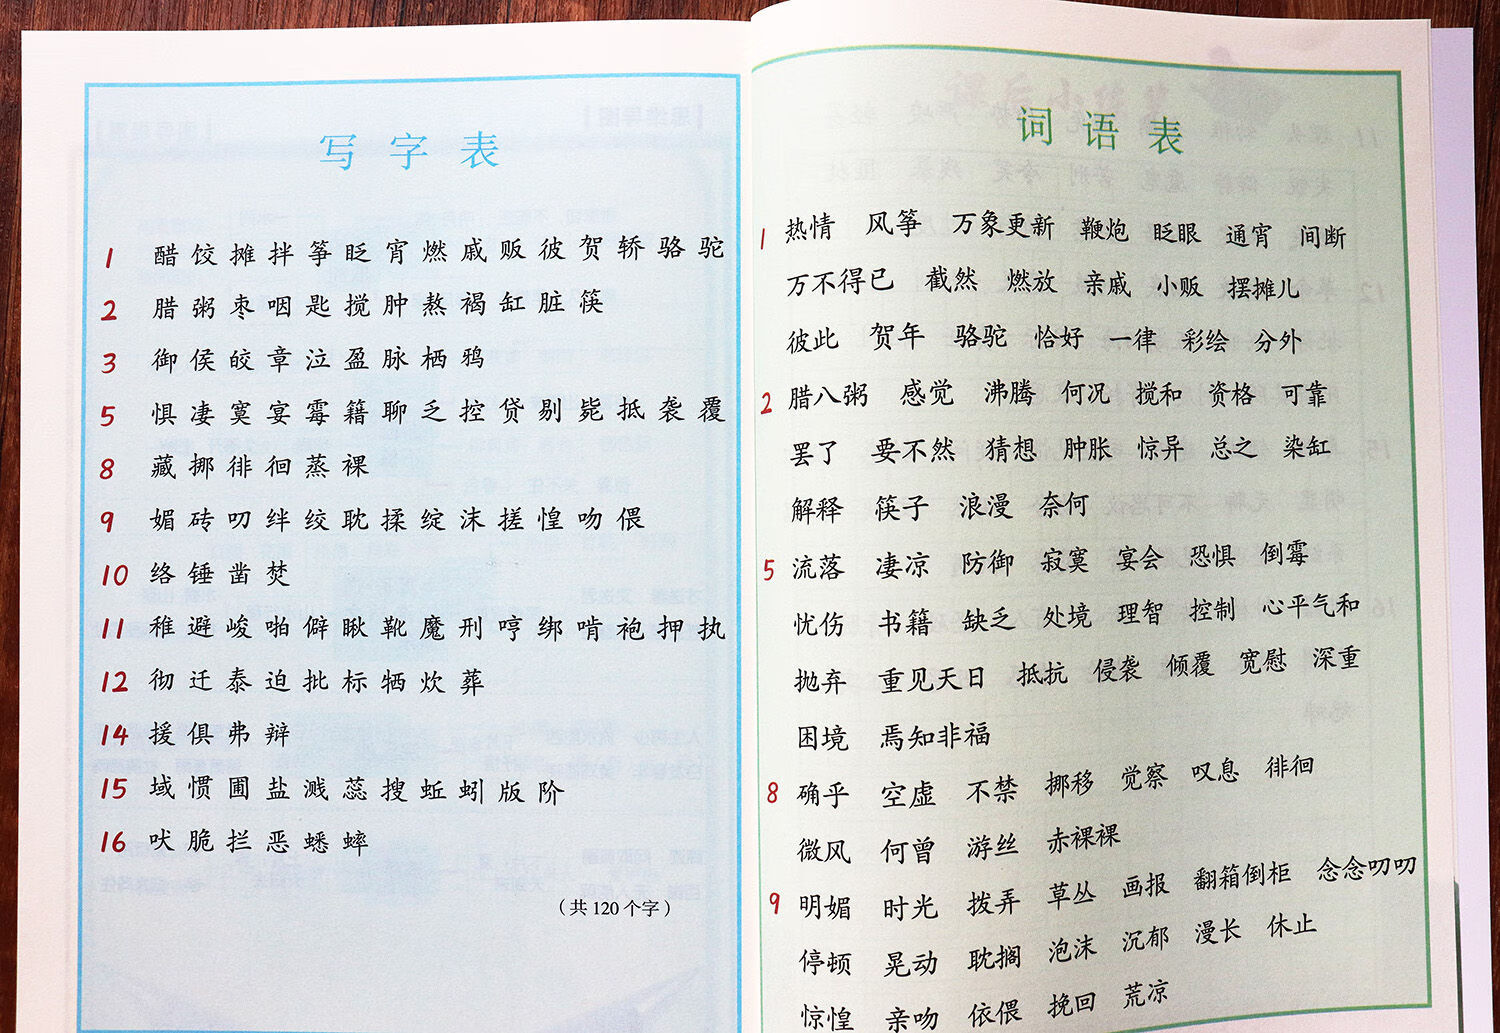 写字表
1 醋饺摊拌筝眨宵燃戚贩彼贺轿骆驼
2 腊粥枣咽匙搅肿熬褐缸脏筷
3 御侯皎章泣盈脉栖鸦
5 惧凄寞宴霉籍聊乏控贷剔毙抵袭覆
8 藏挪徘徊蒸裸
9 媚砖叨绊绞耽揉绽沫搓惶吻偎
10 络锤凿焚
11 稚避峻啪僻瞅靴魔刑哼绑啃袍押执
12 彻迁泰迫批标牺炊葬
14 援俱弗辩
15 域惯圃盐溅蕊搜蚯蚓版阶
16 吠脆拦恶蟋蟀
（共120个字）
词语表
1 热情 风筝 万象更新 鞭炮 眨眼 通宵 间断
万不得已 截然 燃放 亲戚 小贩 摆摊儿
彼此 贺年 骆驼 恰好 一律 彩绘 分外
2 腊八粥 感觉 沸腾 何况 搅和 资格 可靠
罢了 要不然 猜想 肿胀 惊异 总之 染缸
解释 筷子 浪漫 奈何
5 流落 凄凉 防御 寂寞 宴会 恐惧 倒霉
忧伤 书籍 缺乏 处境 理智 控制 心平气和
抛弃 重见天日 抵抗 侵袭 倾覆 宽慰 深重
困境 焉知非福
8 确乎 空虚 不禁 挪移 觉察 叹息 徘徊
微风 何曾 游丝 赤裸裸
9 明媚 时光 拨弄 草丛 画报 翻箱倒柜 念念叨叨
停顿 晃动 耽搁 泡沫 沉郁 漫长 休止
惊惶 亲吻 依偎 挽回 荒凉